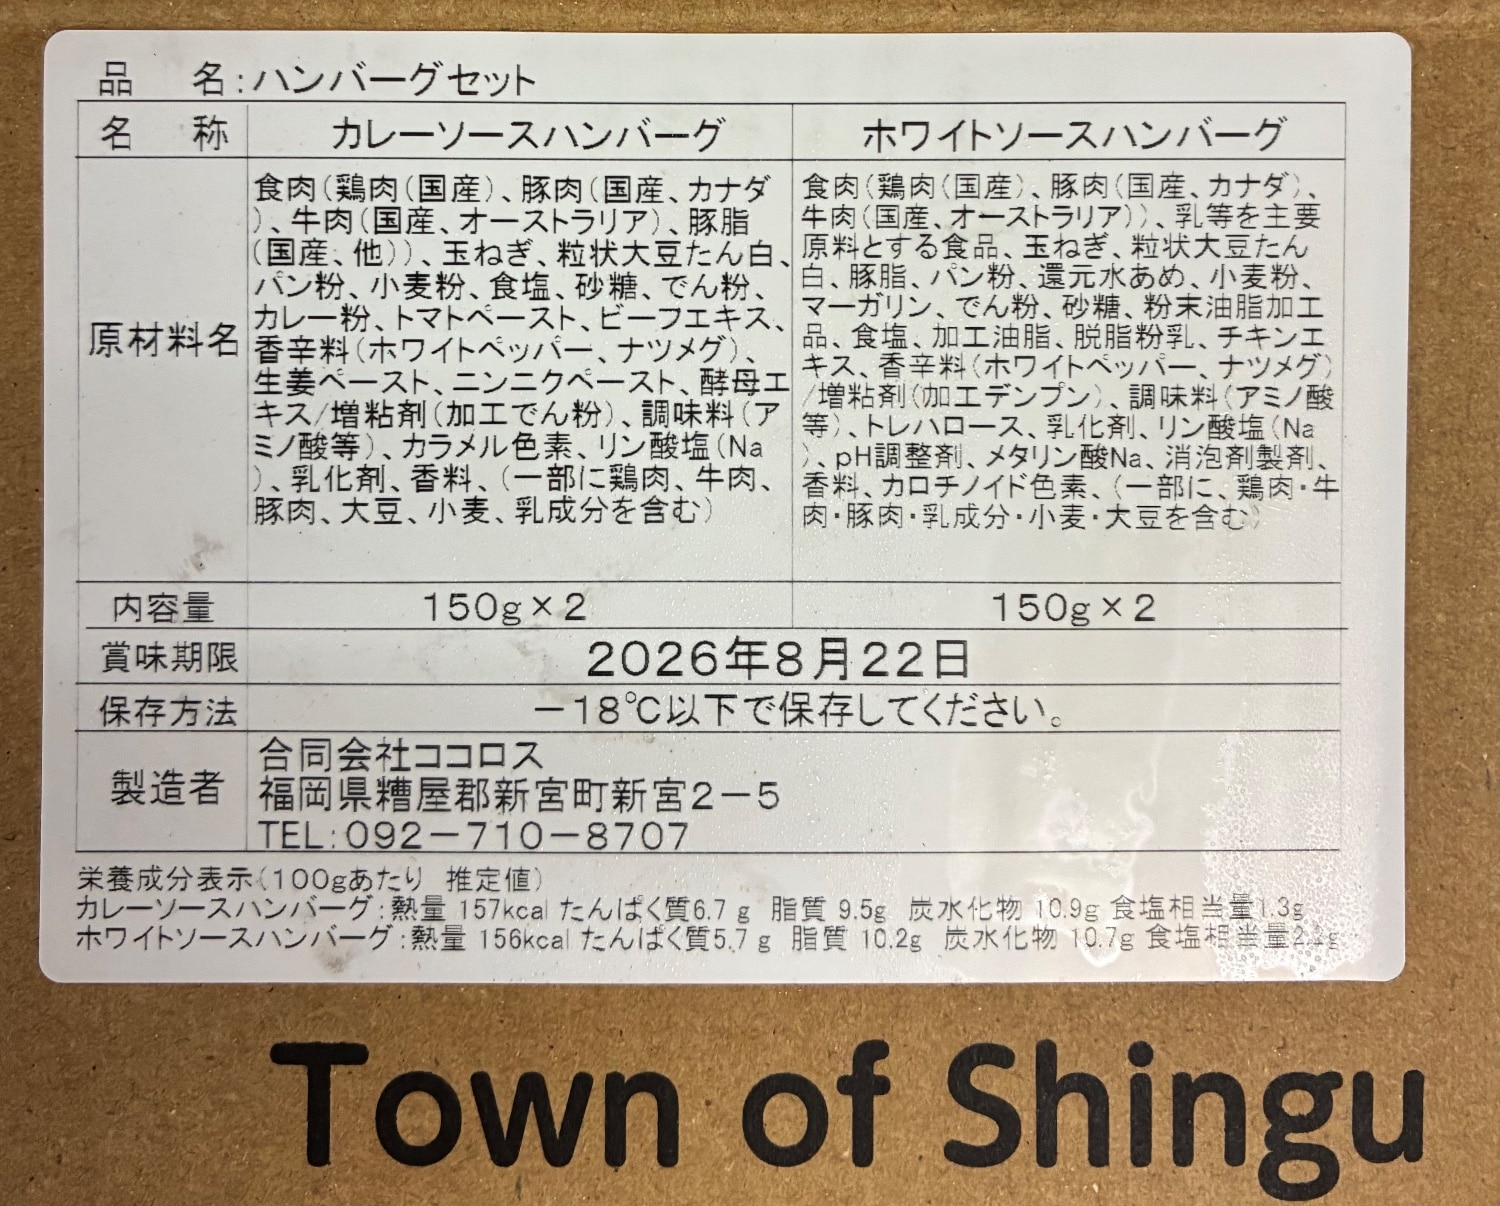 品　名:ハンバーグセット
名　称
カレーソースハンバーグ
ホワイトソースハンバーグ
原材料名
食肉(鶏肉(国産)、豚肉(国産、カナダ
)、牛肉(国産、オーストラリア)、豚脂
(国産、他))、玉ねぎ、粒状大豆たん白、
パン粉、小麦粉、食塩、砂糖、でん粉、
カレー粉、トマトペースト、ビーフエキス、
香辛料(ホワイトペッパー、ナツメグ)、
生姜ペースト、ニンニクペースト、酵母エ
キス/増粘剤(加工でん粉)、調味料(ア
ミノ酸等)、カラメル色素、リン酸塩(Na
)、乳化剤、香料、(一部に鶏肉、牛肉、
豚肉、大豆、小麦、乳成分を含む)
食肉(鶏肉(国産)、豚肉(国産、カナダ)、
牛肉(国産、オーストラリア))、乳等を主要
原料とする食品、玉ねぎ、粒状大豆たん
白、豚脂、パン粉、還元水あめ、小麦粉、
マーガリン、でん粉、砂糖、粉末油脂加工
品、食塩、加工油脂、脱脂粉乳、チキンエ
キス、香辛料(ホワイトペッパー、ナツメグ)
/増粘剤(加工デンプン)、調味料(アミノ酸
等)、トレハロース、乳化剤、リン酸塩(Na
)、pH調整剤、メタリン酸Na、消泡剤製剤、
香料、カロチノイド色素、(一部に、鶏肉・牛
肉・豚肉・乳成分・小麦・大豆を含む)
内容量
150g×2
150g×2
賞味期限
2026年8月22日
保存方法
－18℃以下で保存してください。
製造者
合同会社ココロス
福岡県糟屋郡新宮町新宮2－5
TEL:092－710－8707
栄養成分表示(100gあたり　推定値)
カレーソースハンバーグ:熱量 157kcal たんぱく質6.7 g 脂質 9.5g 炭水化物 10.9g 食塩相当量1.3g
ホワイトソースハンバーグ:熱量 156kcal たんぱく質5.7 g 脂質 10.2g 炭水化物 10.7g 食塩相当量
Town of Shingu